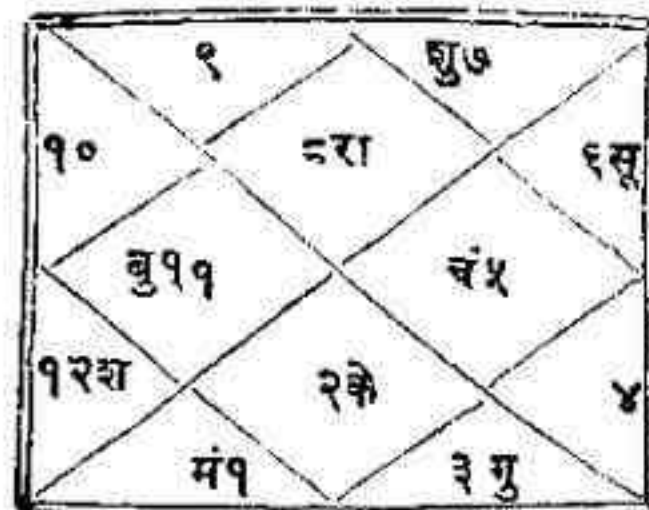 ९ शु७
१० ८रा ६सू
बु११ चं५
१२श २के ४
मं१ ३ गु